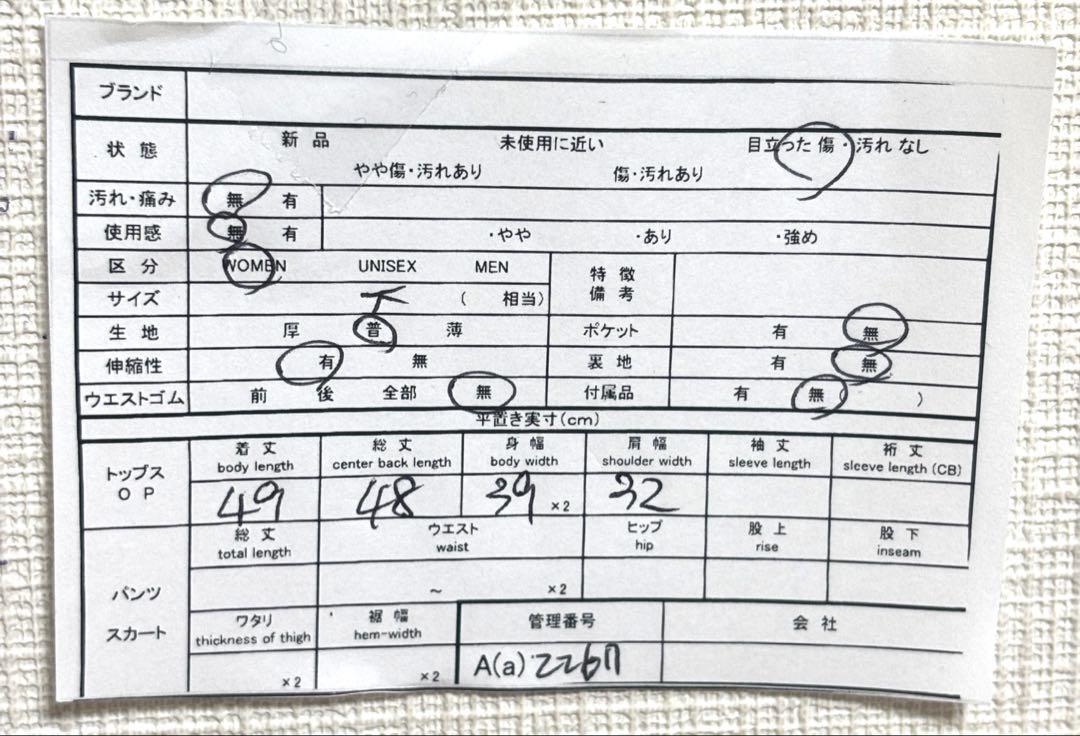 ブランド
状態 新品 未使用に近い 目立った傷・汚れなし
やや傷・汚れあり 傷・汚れあり
汚れ・痛み 無 有
使用感 無 有 ・やや ・あり ・強め
区分 WOMEN UNISEX MEN 特徴備考
サイズ ( 相当)
生地 厚 普 薄 ポケット 有 無
伸縮性 有 無 裏地 有 無
ウエストゴム 前 後 全部 無 付属品 有 無( )
平置き実寸(cm)
トップス OP 着丈 総丈 身幅 肩幅 袖丈 裄丈
body length center back length body width shoulder width sleeve length sleeve length (CB)
49 48 39 ×2 32
総丈 ウエスト ヒップ 股上 股下
total length waist hip rise inseam
パンツ ~ ×2
スカート ワタリ 裾幅 管理番号 会社
thickness of thigh hem-width
×2 ×2 A(a) 2267